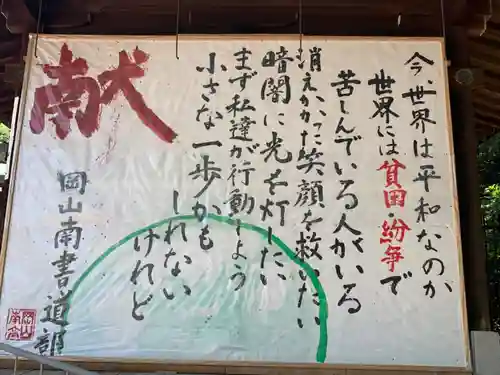 今、世界は平和なのか
世界には貧困・紛争で
苦しんでいる人がいる
消えかかった笑顔を救いたい
暗闇に光を灯したい
まず私達が行動しよう
小さな一歩かも
しれない
けれど
献
岡山南書道部
岡山南高